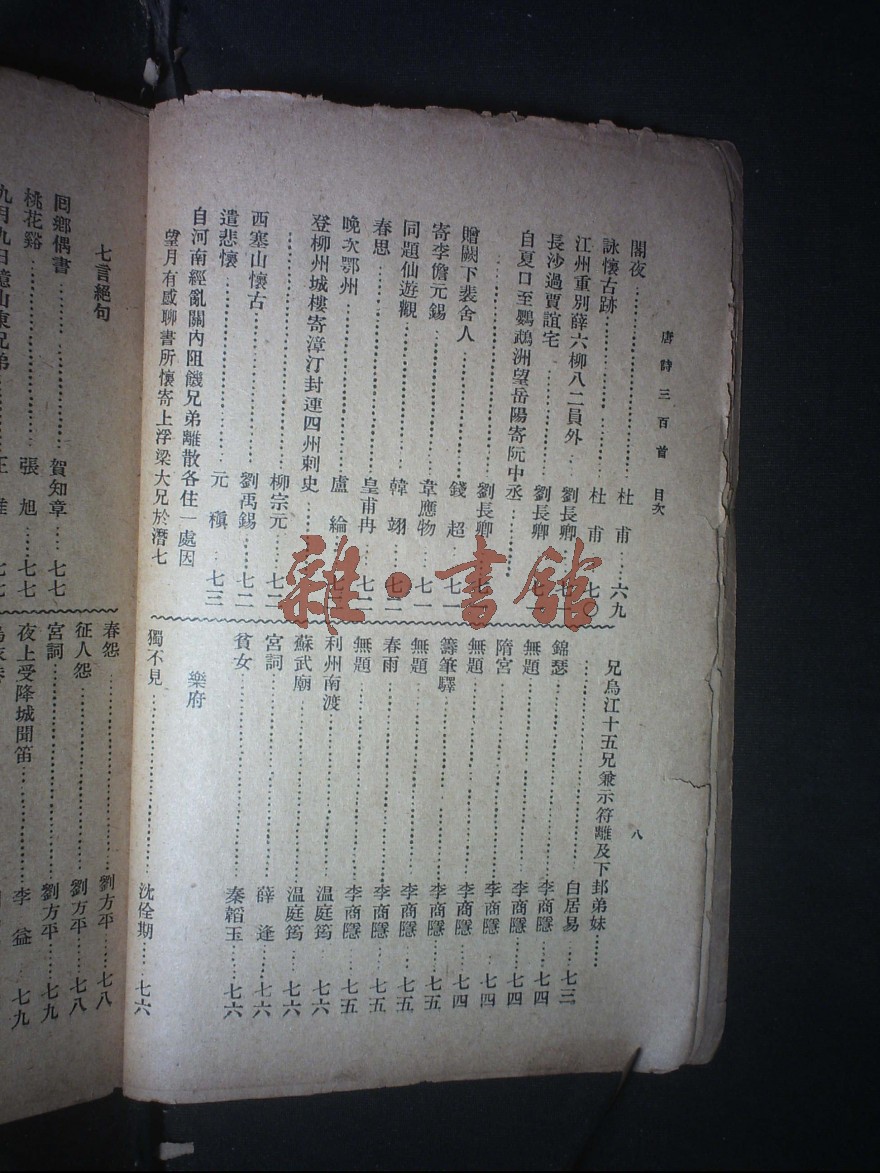 唐詩三百首 目次
八
閣夜 杜甫 六九
詠懷古跡 杜甫 七〇
江州重別薛六柳八二員外 劉長卿
長沙過賈誼宅 劉長卿
自夏口至鸚鵡洲望岳陽寄阮中丞
劉長卿
贈闕下裴舍人 錢超 七一
寄李儋元錫 韋應物 七一
同題仙遊觀 韓翃
春思 皇甫冉
晚次鄂州 盧綸
登柳州城樓寄漳汀封連四州刺史
柳宗元 七二
西塞山懷古 劉禹錫 七二
遣悲懷 元稹 七三
自河南經亂關內阻饑兄弟離散各住一處因
望月有感聊書所懷寄上浮梁大兄於潛七
兄烏江十五兄兼示符離及下邽弟妹
白居易 七三
錦瑟 李商隱 七四
無題 李商隱 七四
隋宮 李商隱 七四
無題 李商隱 七四
籌筆驛 李商隱 七五
無題 李商隱 七五
春雨 李商隱 七五
無題 李商隱 七五
利州南渡 温庭筠 七六
蘇武廟 温庭筠 七六
宮詞 薛逢 七六
貧女 秦韜玉 七六
樂府
獨不見 沈佺期 七六
七言絕句
囘鄉偶書 賀知章 七七
桃花谿 張旭 七七
九月九日憶山東兄弟
春怨 劉方平 七八
征人怨 劉方平 七八
宮詞 劉方平 七九
夜上受降城聞笛 李益 七九
雜·書館